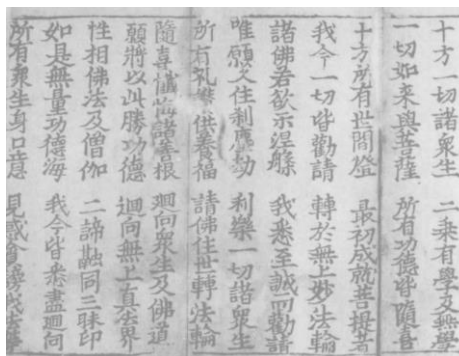 十方一切諸衆生 二乘有學及無學
一切如来與菩薩 所有功德皆隨喜
十方所有世間燈 最初成就菩提者
我今一切皆勸請 轉於無上妙法輪
諸佛若欲示涅槃 我悉至誠而勸請
唯願久住刹塵劫 利樂一切諸衆生
所有礼讚供養福 請佛住世轉法輪
隨喜懺悔諸善根 迴向衆生及佛道
願將以此勝功德 迴向無上真法界
性相佛法及僧伽 二諦融同三昧印
如是無量功德海 我今皆悉盡迴向
所有衆生身口意 見惑